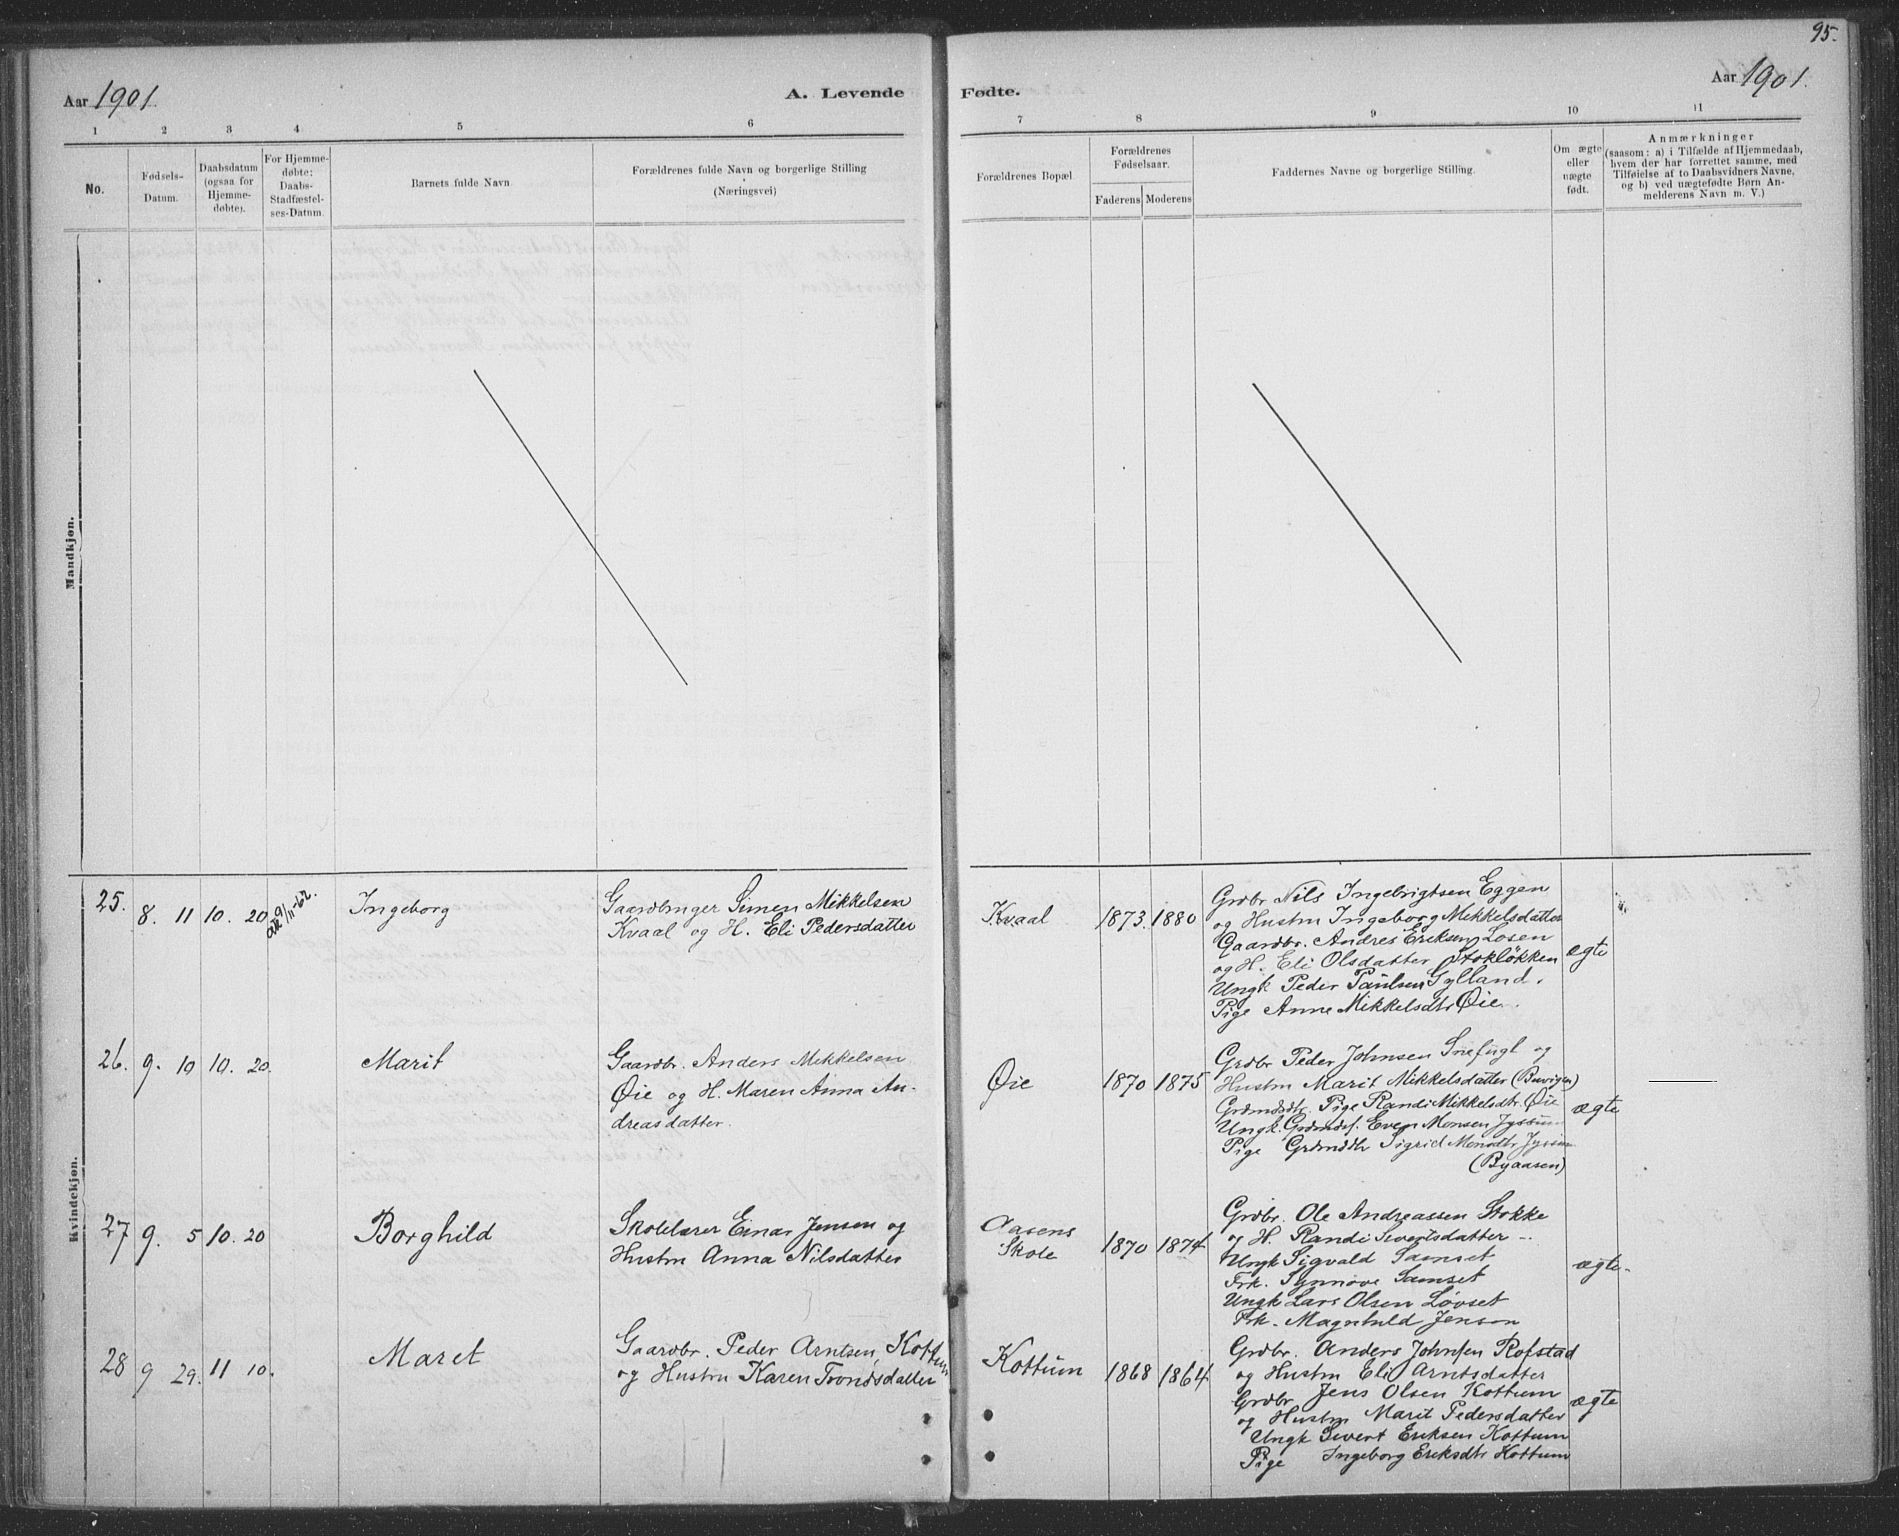 95.
Aar 1901.
A. Levende
Fødte.
Aar 1901.
1 2 3 4 5 6
7 8 9 10 11
No.
Fødsels-
Datum.
Daabsdatum
(ogsaa for
Hjemme-
døbte).
For Hjemme-
døbte:
Daabs-
Stadfæstel-
ses-Datum.
Barnets fulde Navn
Forældrenes fulde Navn og borgerlige Stilling
(Næringsvei)
Forældrenes Bopæl.
Forældrenes
Fødselsaar.
Faderens Moderens
Faddernes Navne og borgerlige Stilling.
Om ægte
eller
uægte
født.
Anmærkninger
(saasom: a) i Tilfælde af Hjemmedaab,
hvem der har forrettet samme, med
Tilføielse af to Daabsvidners Navne,
og b) ved uægtefødte Børn An-
melderens Navn m. V.)
Mandkjøn.
Kvindekjøn.
25. 8. 11 10. 20 att 9/11-62. Ingeborg
Gaardbruger Simen Mikkelsen
Kvaal og H. Eli Pedersdatter
Kvaal 1873. 1880
Grdbr Nils Ingebrigtsen Eggen
og Hustru Ingeborg Mikkelsdatter
Gaardbr. Andres Eriksen Losen
og H. Eli Olsdatter Stokløkken
Ungk Peder Paulsen Gylland.
Pige Anne Mikkelsdtr Øie.
ægte
26. 9. 10 10. 20. Marit
Gaardbr. Anders Mikkelsen
Øie og H. Maren Anna An-
dreasdatter.
Øie 1870 1875
Grdbr Peder Johnsen Snefugl og
Hustru Marit Mikkelsdatter (Buvigen)
Grdmdsdtr. Pige Randi Mikkelsdtr. Øie
Ungk. Grdmdsf. Even Monsen Jyssum
Pige Grdmdtr Sigrid Monsdtr Jyssum
(Byaasen)
ægte
27 9. 5 10. 20 Borghild
Skolelærer Einar Jensen og
Hustru Anna Nilsdatter
Aasens
Skole
1870 1874
Grdbr. Ole Andreassen Stokke
og H. Randi Sivertsdatter -..
Ungk Sigvald Samset
Frk. Synnøve Samset
Ungk Lars Olsen Løvset
Frk. Magnhild Jenson
ægte.
28 9 29. 11 10. Maret
Gaardbr. Peder Arntsen, Kottum
og Hustru Karen Trondsdatter
Kottum 1868 1864
Grdbr. Anders Johnsen Rofstad
og Hustru Eli Arntsdatter
Grdbr. Jens Olsen Kottum
og Hustru Marit Pedersdatter
Ungk Sivert Eriksen Kottum
Pige Ingeborg Eriksdtr Kottum
ægte